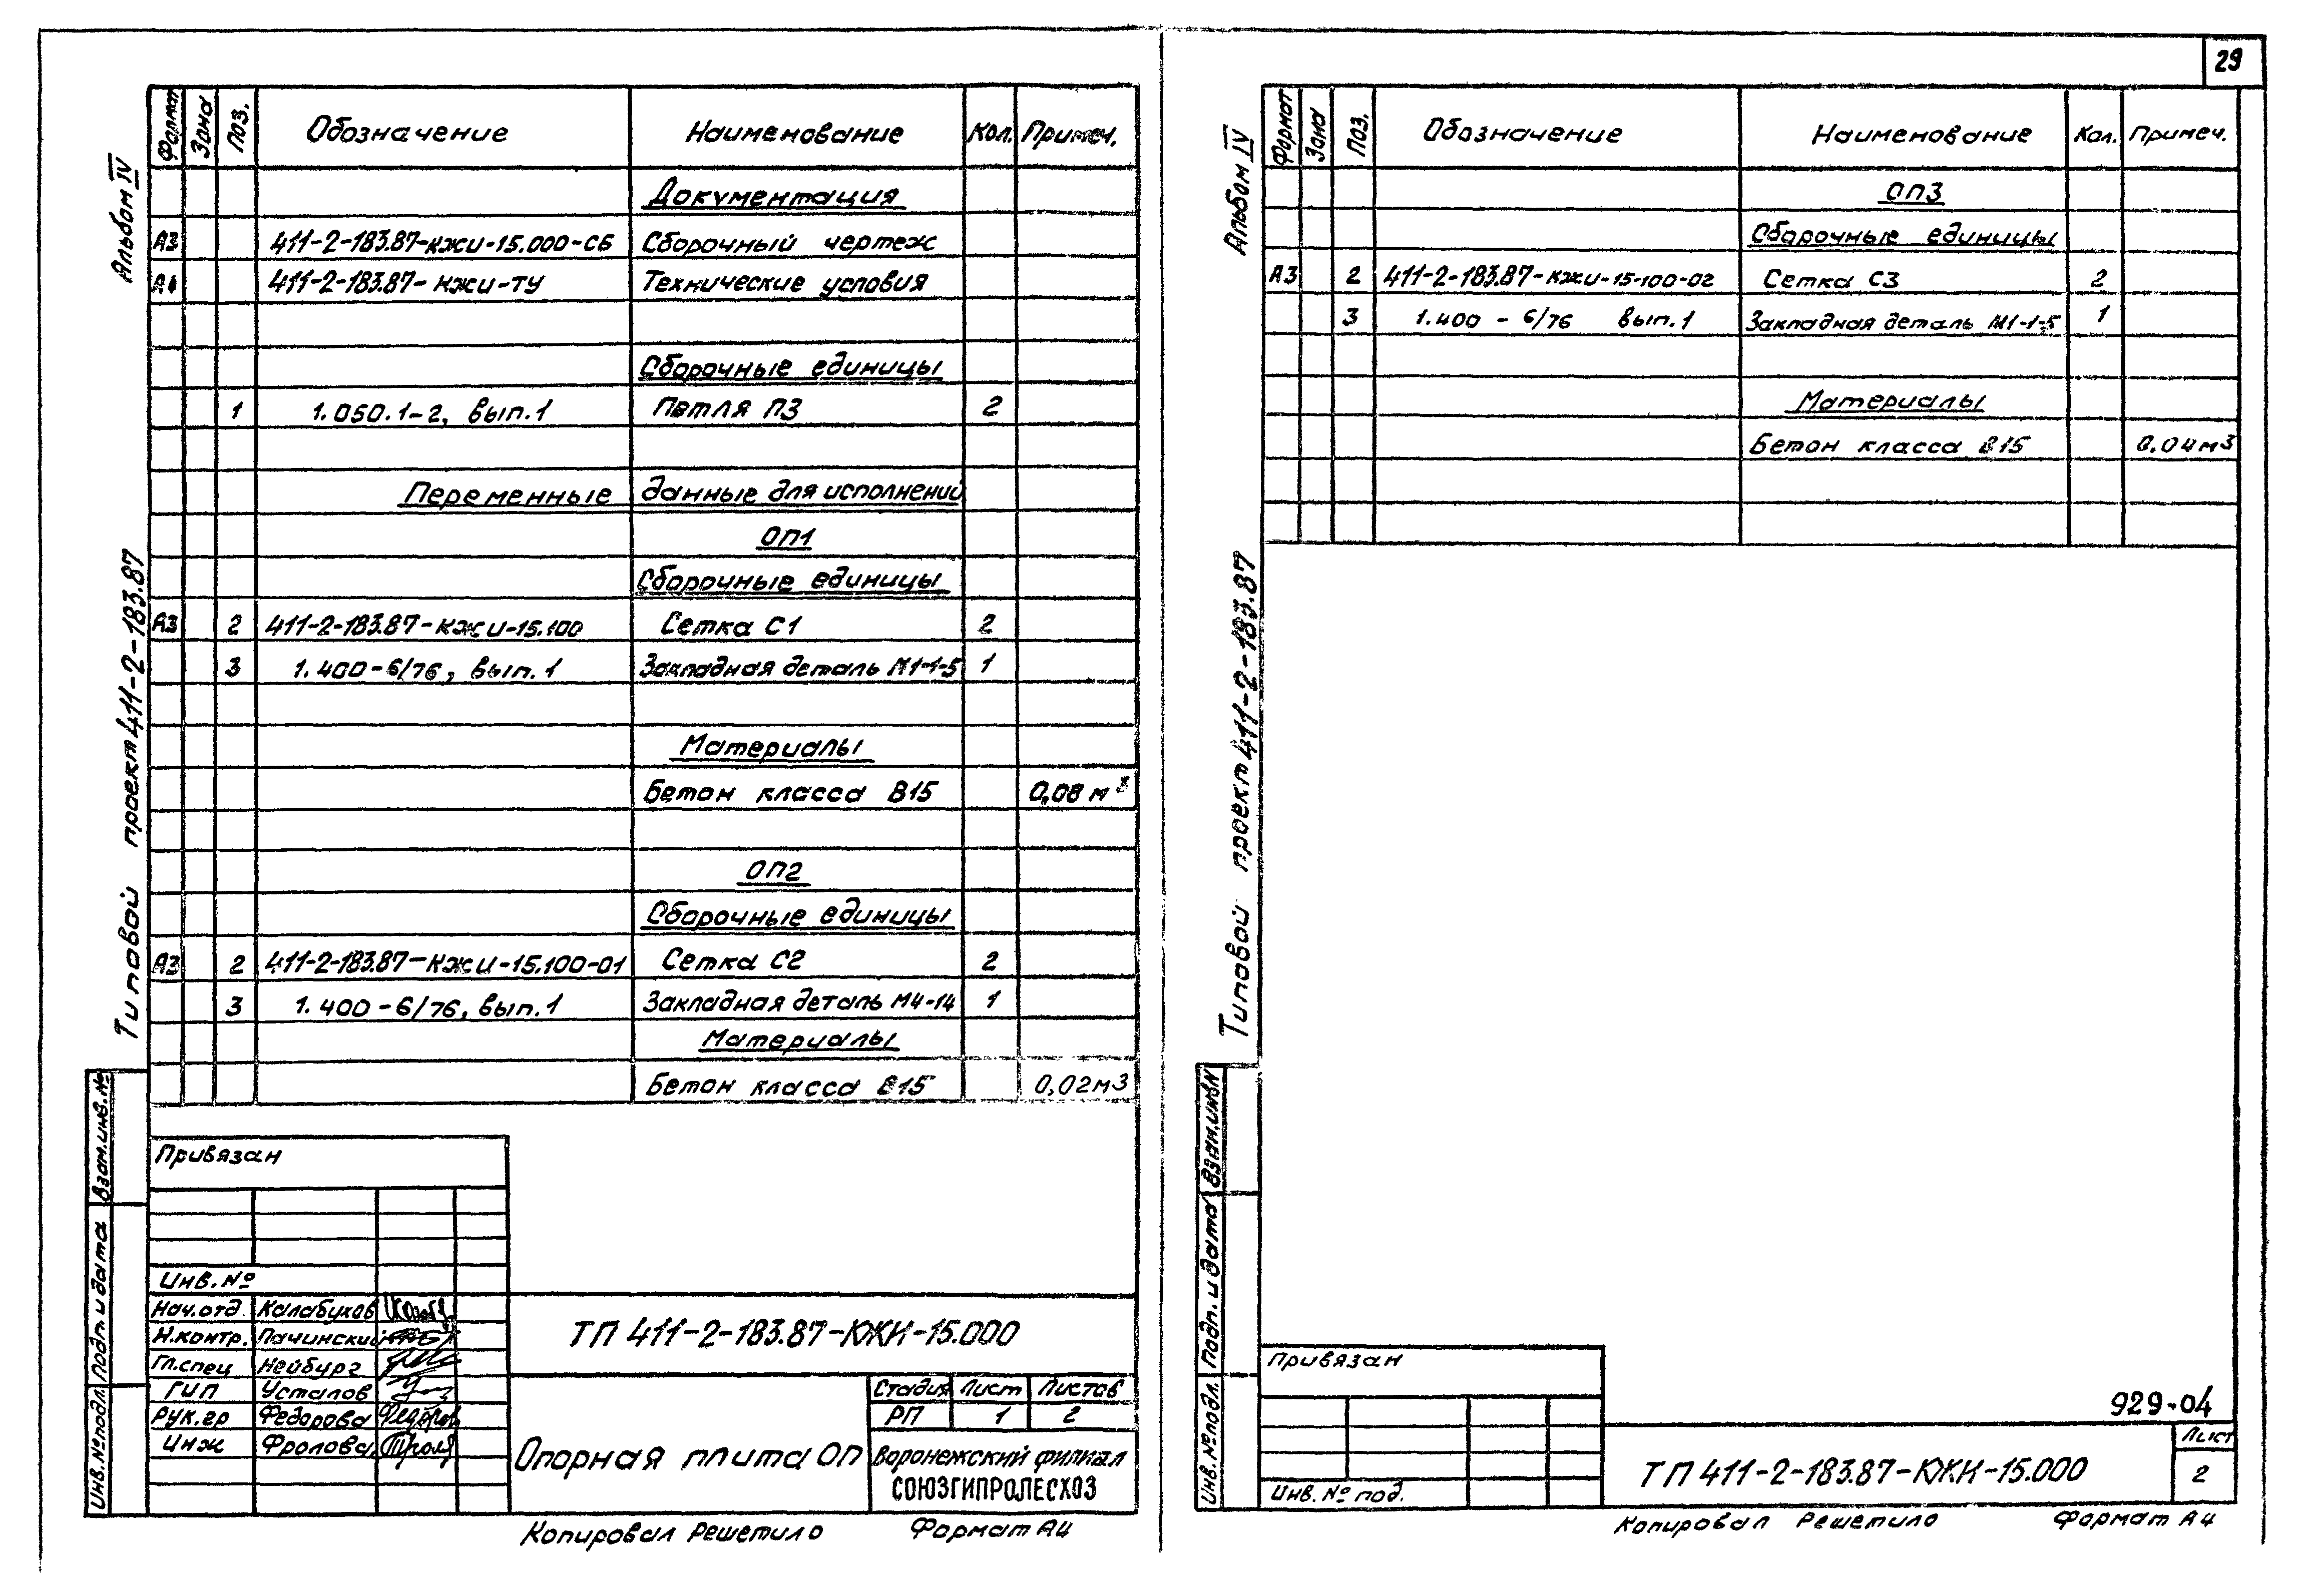 29
Альбом IV
Типовой проект 411-2-183.87
Формат Зона Поз. Обозначение Наименование Кол. Примеч.
Документация
А3 411-2-183.87-КЖИ-15.000-СБ Сборочный чертеж
411-2-183.87-КЖИ-ТУ Технические условия
Сборочные единицы
1 1.050.1-2, вып.1 Петля П3 2
Переменные данные для исполнений
ОП1
Сборочные единицы
А3 2 411-2-183.87-КЖИ-15.100 Сетка С1 2
3 1.400-6/76, вып.1 Закладная деталь М1-1-5 1
Материалы
Бетон класса В15 0,08 м3
ОП2
Сборочные единицы
А3 2 411-2-183.87-КЖИ-15.100-01 Сетка С2 2
3 1.400-6/76, вып.1 Закладная деталь М4-14 1
Материалы
Бетон класса В15 0,02м3
Взам.инв.№
Подп. и дата
Инв.№подл.
Привязан
Инв.№
Нач.отд. Калабухов
Н.контр. Пачинский
Гл.спец Нейбург
ГИП Усталов
Рук.гр Федорова
Инж Фролова
ТП 411-2-183.87-КЖИ-15.000
Опорная плита ОП
Стадия Лист Листов
РП 1 2
Воронежский филиал
СОЮЗГИПРОЛЕСХОЗ
Копировал Решетило Формат А4
Альбом IV
Типовой проект 411-2-183.87
Формат Зона Поз. Обозначение Наименование Кол. Примеч.
ОП3
Сборочные единицы
А3 2 411-2-183.87-КЖИ-15-100-02 Сетка С3 2
3 1.400 - 6/76 вып.1 Закладная деталь М1-1-5 1
Материалы
Бетон класса В15 0.04м3
Взам.инв№
Подп. и дата
Инв.№подл.
Привязан
Инв. № под.
929-04
ТП 411-2-183.87-КЖИ-15.000
Лист
2
Копировал Решетило Формат А4